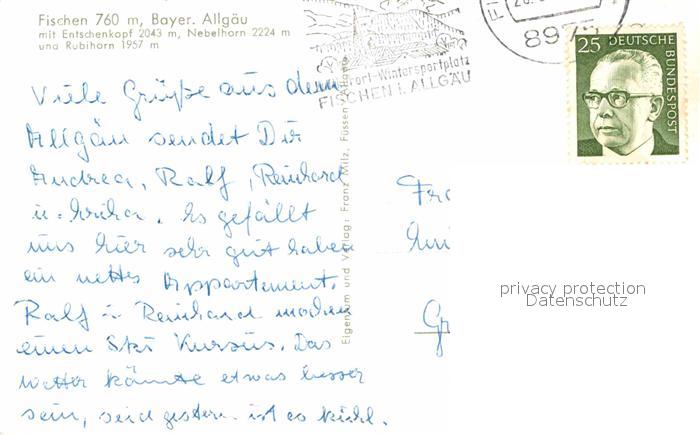 Fischen 760 m, Bayer. Allgäu
mit Entschenkopf 2043 m, Nebelhorn 2224 m
und Rubihorn 1957 m
Viele Grüße aus dem
Allgäu sendet Dir
Andrea, Ralf, Reinhard
u. Es gefällt
uns hier sehr gut haben
ein nettes Appartement.
Ralf u. Reinhard machen
einen Ski Kursus. Das
Wetter könnte etwas besser
sein, seid gestern ist es kühl.
Eigentum und Verlag: Franz Milz, Füssen Allgäu
Kurort-Wintersportplatz
FISCHEN I. ALLGÄU
8975
25 DEUTSCHE BUNDESPOST
Fr
privacy protection
Datenschutz